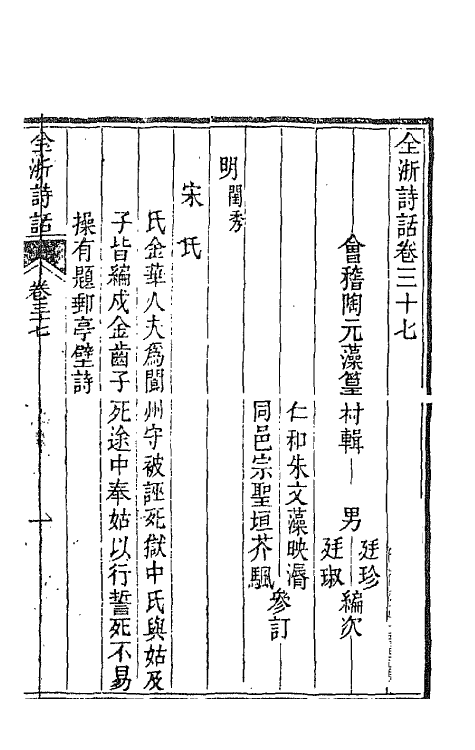 全浙詩話卷三十七
會稽陶元藻篁村輯 男廷珍廷琡編次
仁和朱文藻映漘
同邑宗聖垣芥颿參訂
明閨秀
宋氏
氏金華人夫爲閬州守被誣死獄中氏與姑及
子皆編戍金齒子死途中奉姑以行誓死不易
操有題郵亭壁詩
全浙詩話 卷三十七 一